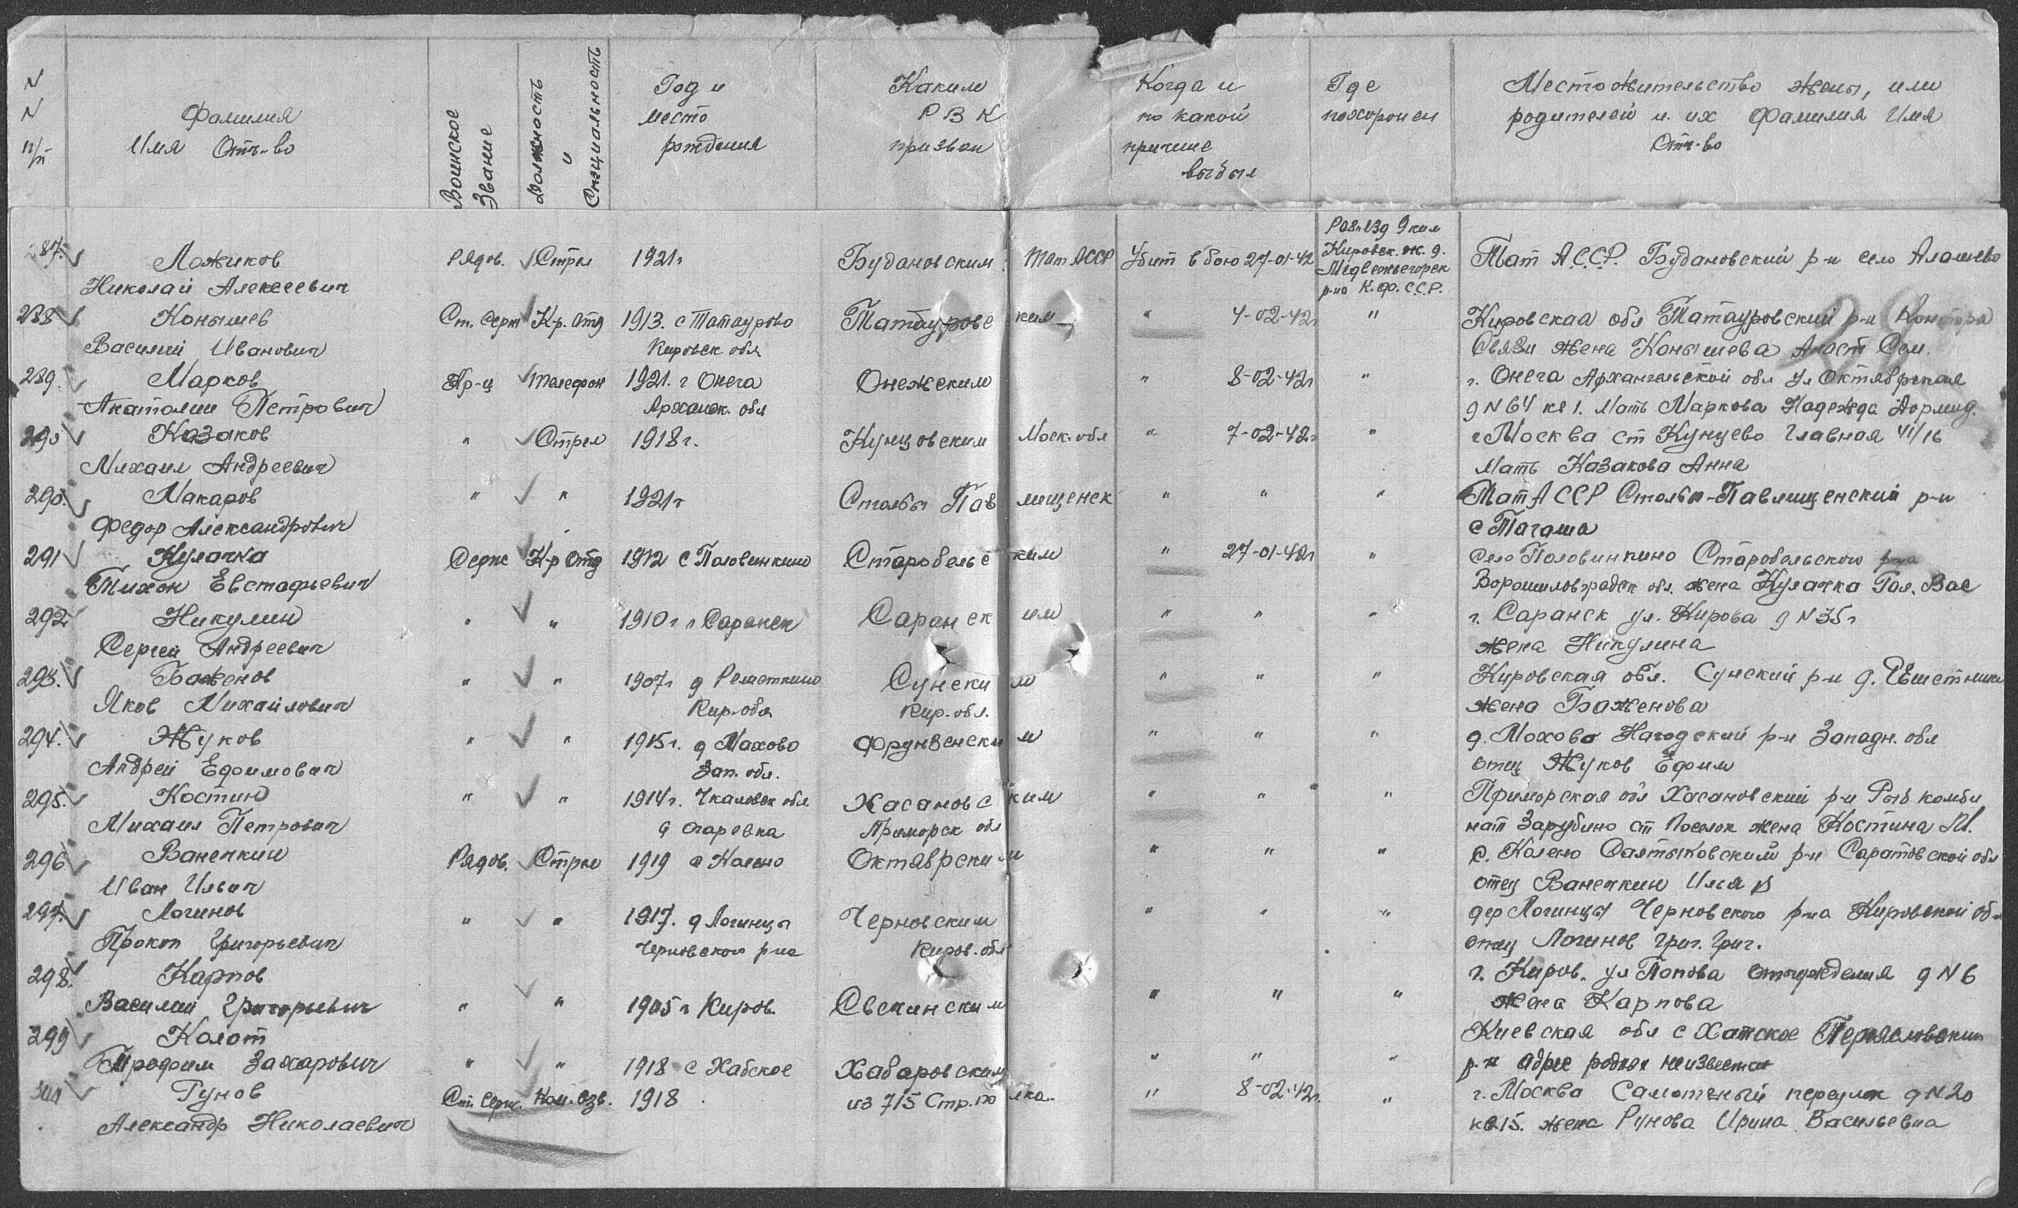 N N п/п
Фамилия Имя Отч-во
Воинское Звание
Должность и Специальность
Год и место рождения
Каким РВК призван
Когда и по какой причине выбыл
Где похоронен
Место жительство жены, или родителей и их Фамилия Имя Отч-во
287. Ложиков Рядов. Стрел 1921г Будановским Тат АССР Убит в бою 27-01-42 Раз'езд 9 км Тат АССР. Будановский р-н село
Николай Алексеевич Кировск. ж. д. Медвежьегорск р-на К.Ф.ССР.
288 Конышев Ст. Серж Кр. Отд 1913. с Татаурово Татауровским " 4-02-42г " Кировская обл Татауровский р-н Контора
Василий Иванович Кировск обл связи жена Конышева Сем.
289. Марков Кр-ц Телефон 1921. г Онега Онежским " 8-02-42г " г. Онега Архангельской обл ул Октябрьская
Анатолии Петрович Арханг. обл д N 64 кв 1. Мать Маркова Надежда
290 Казаков " Стрел 1918г. Кунцовским Моск. обл " 7-02-42г " г Москва ст Кунцево Главная 41/16
Михаил Андреевич Мать Казакова Анна
290. Макаров " " 1921г Столбы Павлищенск " " " Тат АССР Столбы-Павлищенский р-н
Федор Александрович с Тагаша
291 Кулачка Серж Кр Отд 1912 с Половинкино Старобельским " 27-01-42г " Село Половинкино Старобельского р-на
Тихон Евстафьевич Ворошиловградск обл. жена Кулачка Гал. Вас
292 Никулин " " 1910г г Саранск Саранским " " " г. Саранск ул. Кирова д N 35г
Сергей Андреевич жена Никулина
293. Баженов " " 1907г д Сунским " " " Кировская обл. Сунский р-н д.
Яков Михайлович Кир. обл Кир. обл. жена Баженова
294. Жуков " " 1915г. д Махово Фрунзенским " " " д. Мохово р-н Западн. обл
Андрей Ефимович Зап. обл. отец Жуков Ефим
295. Костин " " 1914г. Чкаловск обл Хасановским " " " Приморская обл Хасановский р-н Рыб комби
Михаил Петрович д Огаревка Приморск обл нат Зарубино ст Поселок жена Костина М.
296 Ванечкин Рядов. Стрел 1919 с Колено Октябрским " " " с. Колено Салтыковский р-н Саратовской обл
Иван Ильич отец Ванечкин Илья
297. Логинов " " 1917. д Логинцы Черновским " " " дер Логинцы Черновского р-на Кировской об-
Прокоп Григорьевич Черновского р-на Киров. обл отец Логинов Григ. Григ.
298. Карпов г. Киров. ул Попова д N 6
Василий Григорьевич " " 1905г Киров " " " жена Карпова
299 Колот Киевская обл с Хатское
Трофим Захарович " " 1918 с Хабское Хабаровским " " " р-н адрес родных неизвестен
300 Гунов Ст. Серж. Ком. взв. 1918 из 715 Стр. полка " 8-02-42г. " г. Москва Самотечный переулок д N 20
Александр Николаевич кв 15. жена Рунова Ирина Васильевна